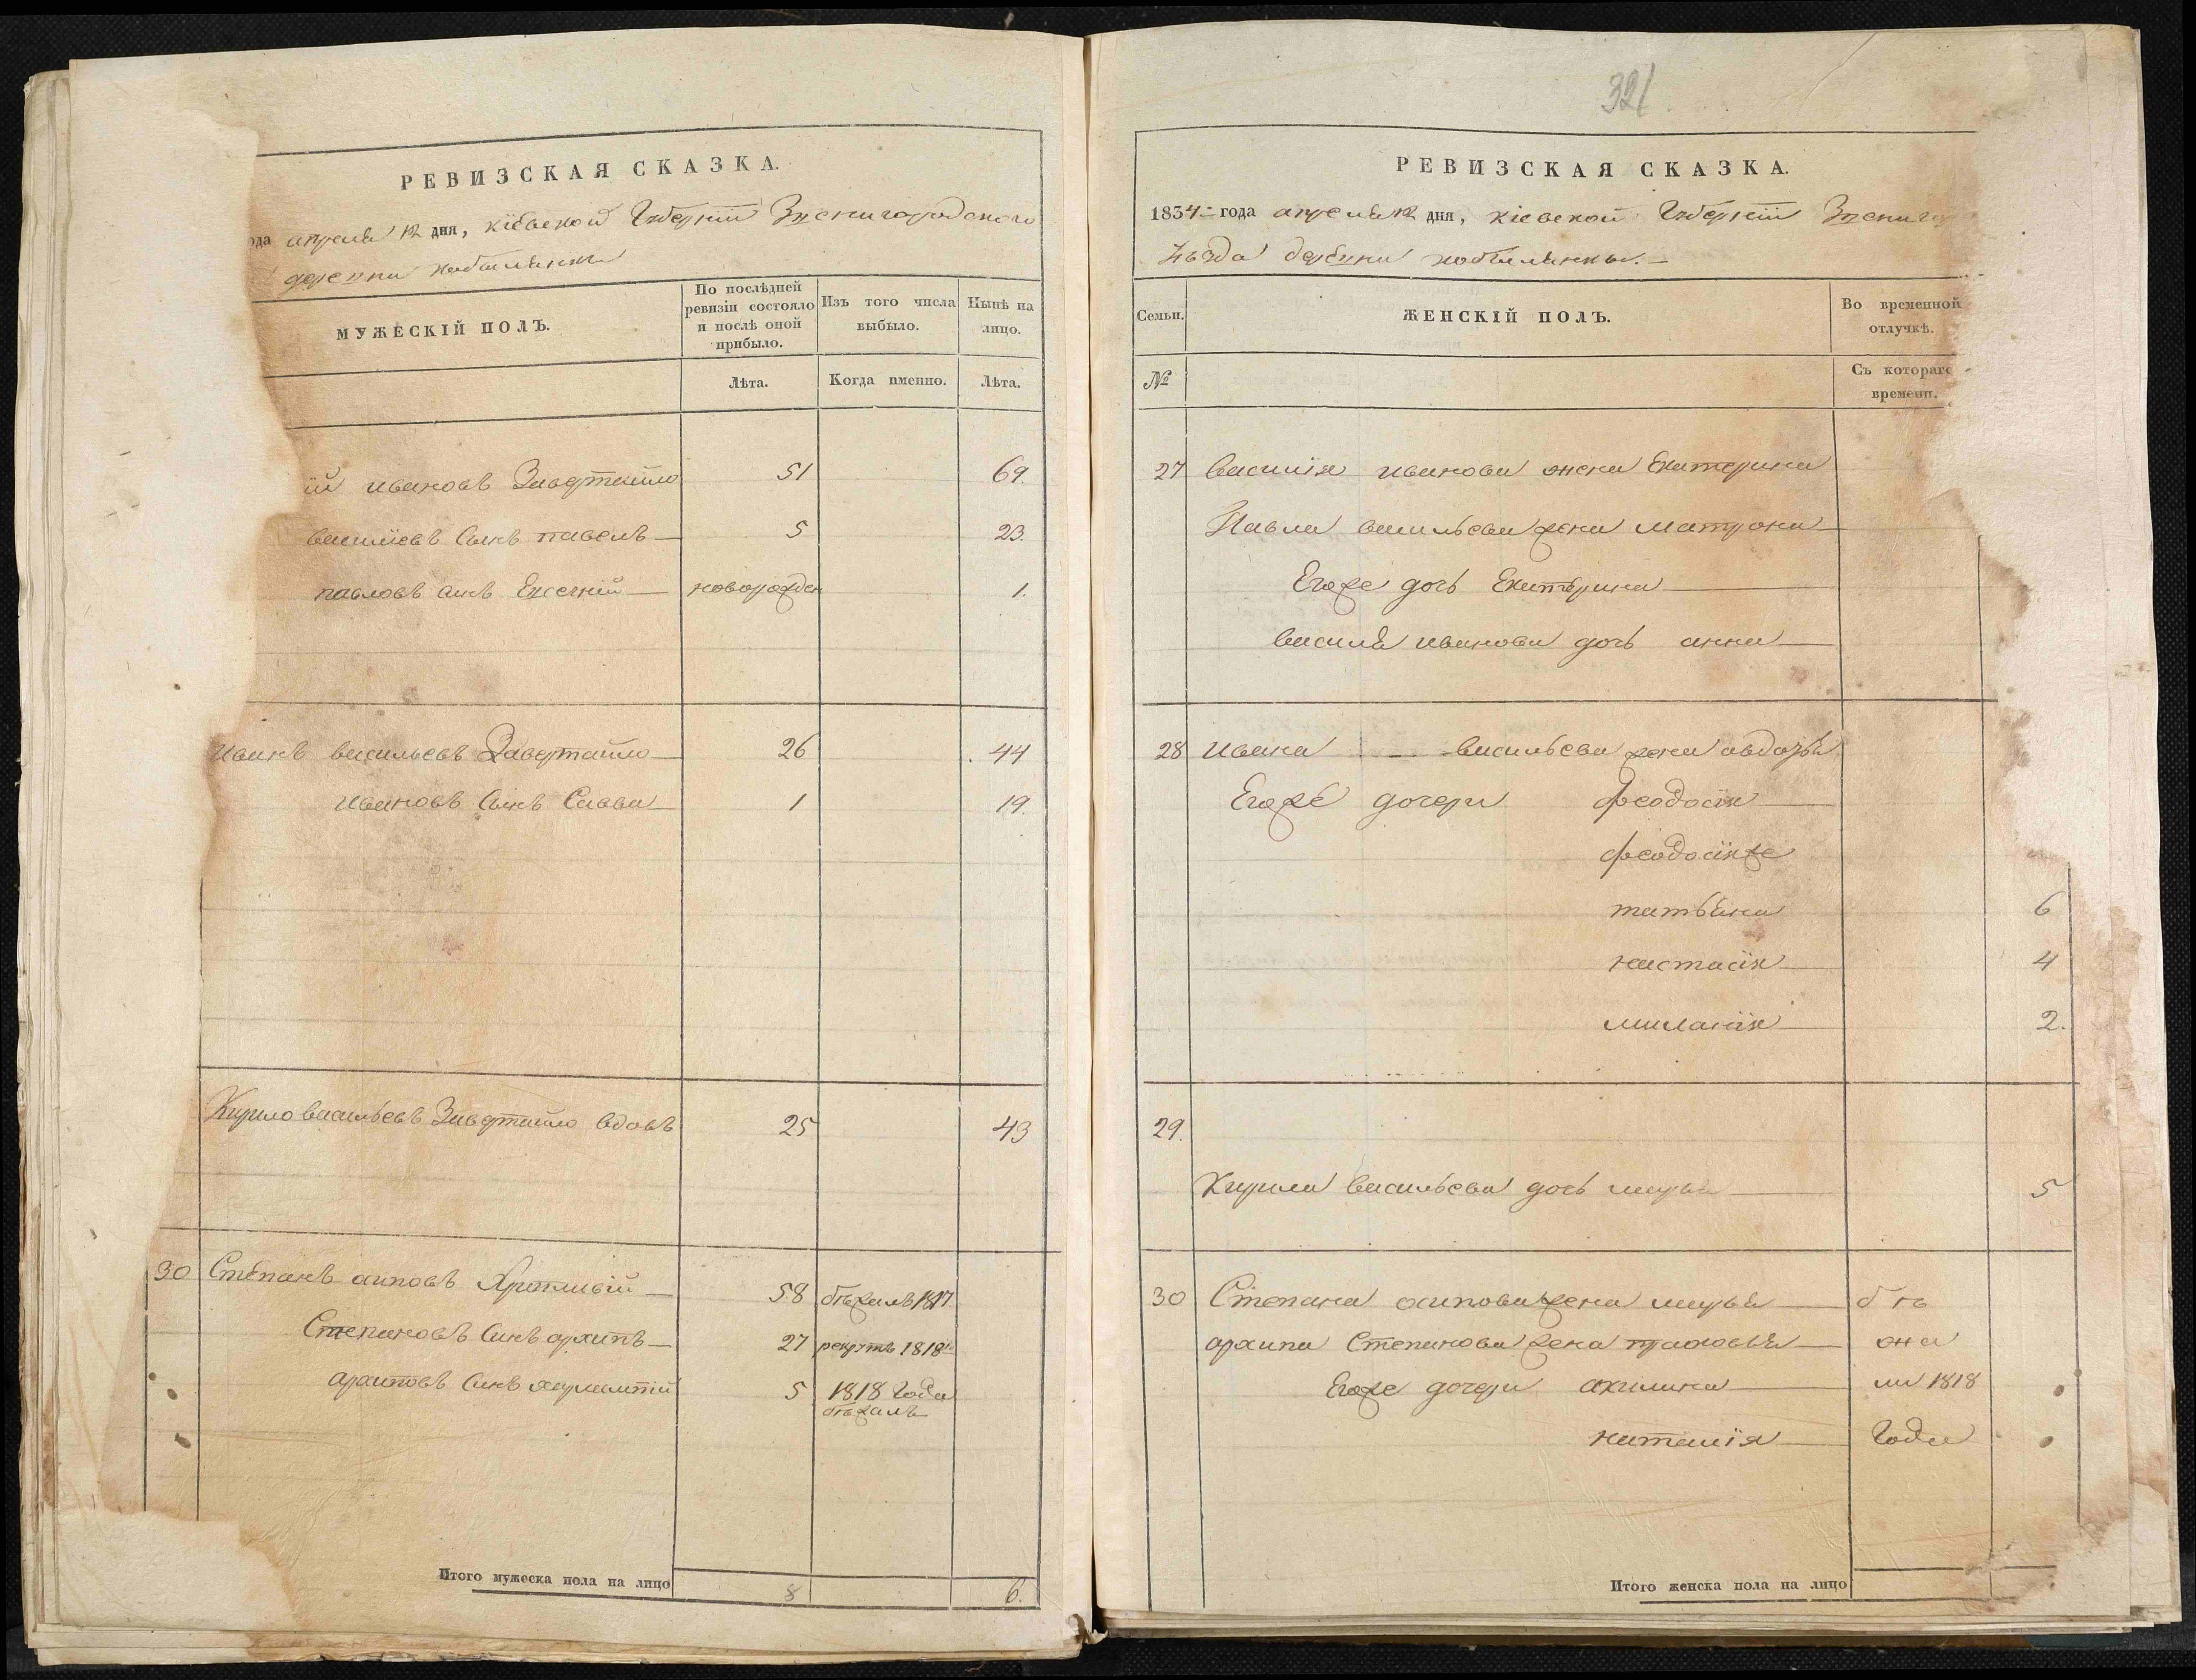 РЕВИЗСКАЯ СКАЗКА.
ода апреля 12 дня, Кіевской Губерніи Звенигородского
деревни Кобиляки
МУЖЕСКІЙ ПОЛЪ.
По послѣдней ревизіи состояло и послѣ оной прибыло.
Изъ того числа выбыло.
Нынѣ на лицо.
Лѣта.
Когда именно.
Лѣта.
ій ивановъ Завертайло 51 69.
василіевъ Сынъ павелъ 5 23.
павловъ сынъ новорожден 1.
Иванъ васильевъ Завертайло 26 44
Ивановъ Сынъ Савва 1 19.
Кирило васильевъ Завертайло вдовъ 25 43
30 Степанъ осиповъ 58 бѣжалъ 1817
Степановъ Сынъ архипъ 27 рекрутъ 1818
архиповъ Сынъ 5 1818 Года
бѣжалъ
Итого мужеска пола на лицо 8 6.
321
РЕВИЗСКАЯ СКАЗКА.
1834 года апреля 12 дня, Кіевской Губерніи Звениго
уѣзда деревни Кобиляки.
Семьи.
ЖЕНСКІЙ ПОЛЪ.
Во временной отлучкѣ.
№
Съ котораго времени.
27 василія иванова жена Екатерина
Павла васильева жена матрона
Егоже дочь Екатерина
василя иванова дочь анна
28 Ивана васильева жена авдотья
Егоже дочери феодосія
феодосія же
татьяна 6
настасія 4
миланія 2.
29.
Кирила васильева дочь марья 5
30 Степана осипова жена марья бѣ
архипа Степанова жена жа
Егоже дочери акилина ли 1818
наталія Года
Итого женска пола на лицо